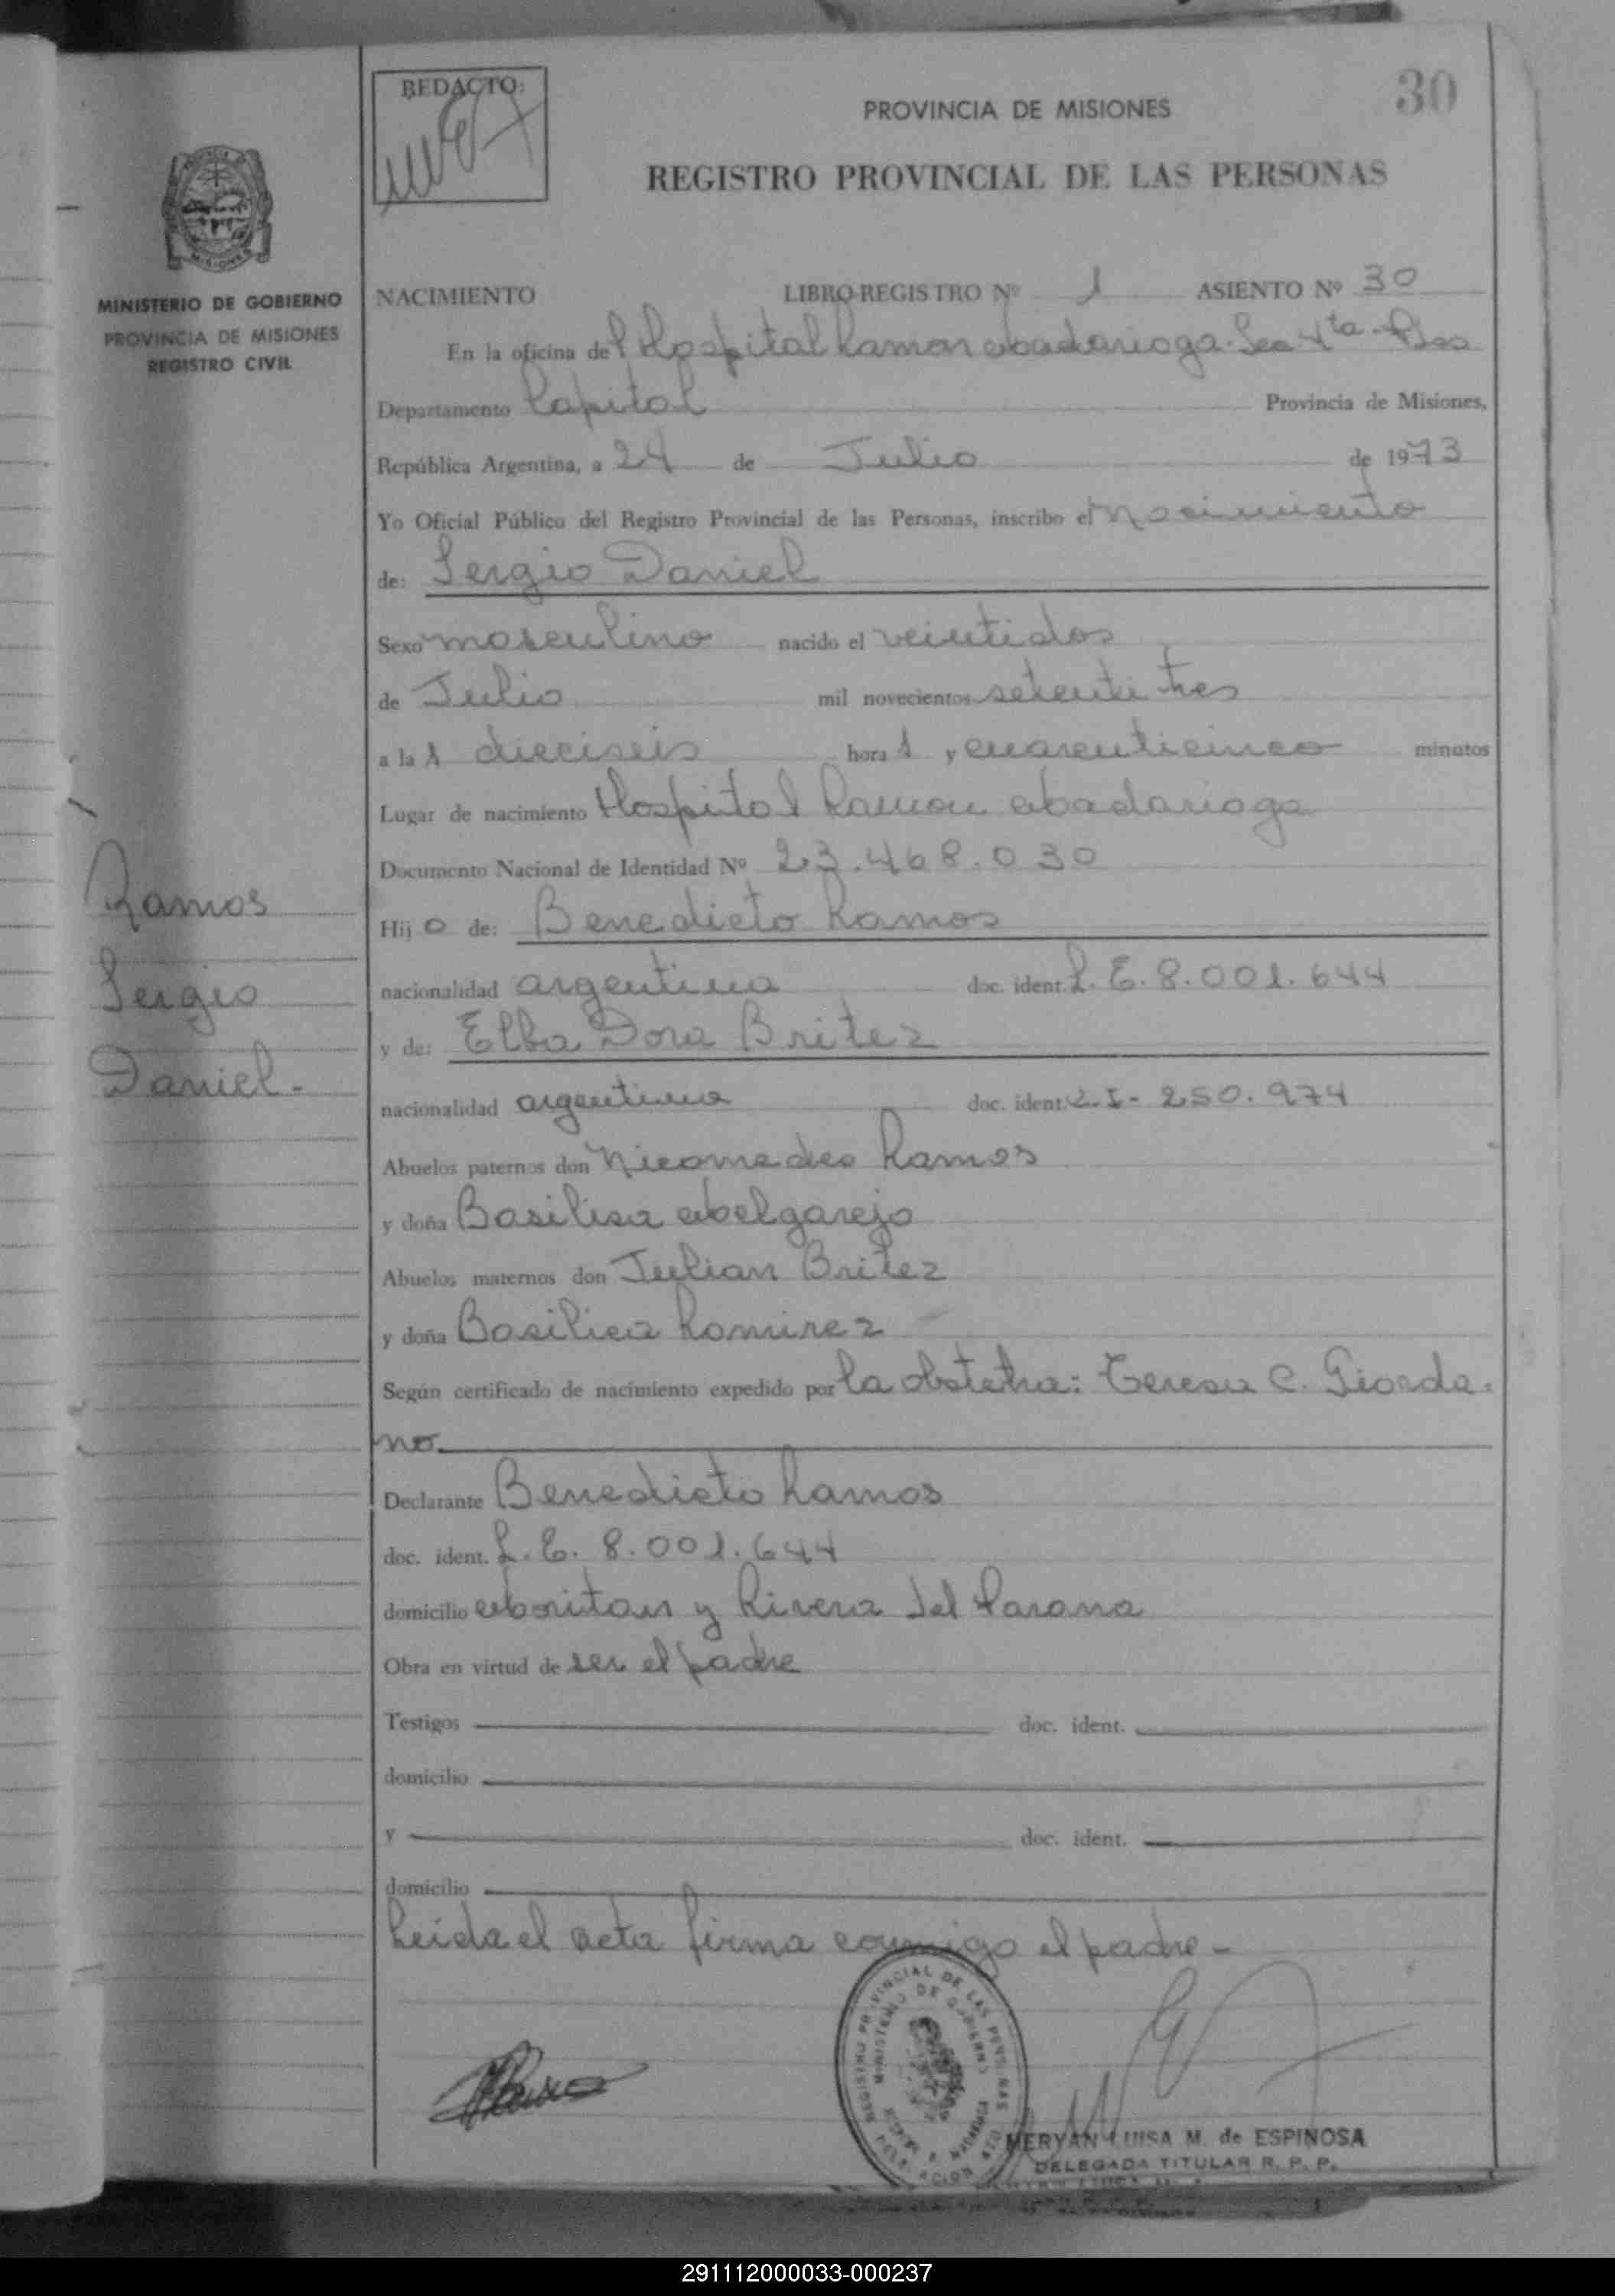 30
REDACTO:
PROVINCIA DE MISIONES
REGISTRO PROVINCIAL DE LAS PERSONAS
MINISTERIO DE GOBIERNO
PROVINCIA DE MISIONES
REGISTRO CIVIL
NACIMIENTO LIBRO-REGISTRO Nº 1 ASIENTO Nº 30
En la oficina del Hospital Ramon Madariaga. Sec 4ta - Pdas
Departamento Capital Provincia de Misiones,
República Argentina, a 24 de Julio de 1973
Yo Oficial Público del Registro Provincial de las Personas, inscribo el Nacimiento
de: Sergio Daniel
Sexo masculino nacido el veintidos
de Julio mil novecientos setenti tres
a la s dieciseis hora s y cuarenticinco minutos
Lugar de nacimiento Hospital Ramon Madariaga
Documento Nacional de Identidad Nº 23.468.030
Hij o de: Benedicto Ramos
nacionalidad argentina doc. ident. L.E. 8.001.644
y de: Elba Dora Britez
nacionalidad argentina doc. ident. L.I- 250.974
Abuelos paternos don Nicomedes Ramos
y doña Basilisa Melgarejo
Abuelos maternos don Julian Britez
y doña Basilica Ramirez
Según certificado de nacimiento expedido por la obstetra: Teresa C. Giorda-
no.
Declarante Benedicto Ramos
doc. ident. L.E. 8.001.644
domicilio Moritan y Rivera del Parana
Obra en virtud de ser el padre
Testigos doc. ident.
domicilio
y doc. ident.
domicilio
Leida el acta firma conmigo el padre -
Ramos
Sergio
Daniel.
REGISTRO PROVINCIAL DE LAS PERSONAS
MINISTERIO DE GOBIERNO
MERYAN LUISA M. de ESPINOSA
DELEGADA TITULAR R. P. P.
291112000033-000237